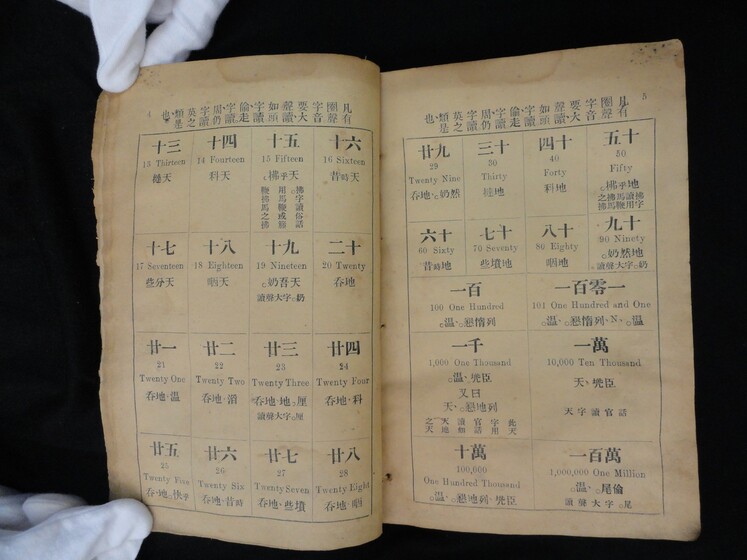 4
凡有圈聲字音要大聲讀如頭字讀偷走字讀周仍字讀英之類是也
十三
13 Thirteen
十四
14 Fourteen
科天
十五
15 Fifteen
拂乎天
拂字讀俗話
用馬鞭或
鞭拂馬之拂
十六
16 Sixteen
昔時天
十七
17 Seventeen
些分天
十八
18 Eighteen
咽天
十九
19 Nineteen
奶吾天
奶字大聲讀
二十
20 Twenty
吞地
廿一
21
Twenty One
吞地、温
廿二
22
Twenty Two
廿三
23
Twenty Three
吞地、地厘
厘字大聲讀
廿四
24
Twenty Four
吞地、科
廿五
25
Twenty Five
吞、地快乎
廿六
26
Twenty Six
吞、地、昔時
廿七
27
Twenty Seven
吞地、些墳
廿八
28
Twenty Eight
吞地、咽
5
凡有圈聲字音要大聲讀如頭字讀偷走字讀周仍字讀英之類是也
廿九
29
Twenty Nine
吞地、奶然
三十
30
Thirty
四十
40
Forty
科地
五十
50
Fifty
拂乎地
六十
60 Sixty
昔時地
七十
70 Seventy
些墳地
八十
80 Eighty
咽地
九十
90 Ninety
奶然地
奶字大聲讀
一百
100 One Hundred
温、戀惰列
一百零一
101 One Hundred and One
温、戀惰列、N、温
一千
1,000 One Thousand
温、臣
又曰
天、戀地列
此天字用官話讀如天地之天
一萬
10,000 Ten Thousand
天、臣
天字讀官話
十萬
100,000
One Hundred Thousand
一百萬
1,000,000 One Million
温、尾倫
尾字大聲讀